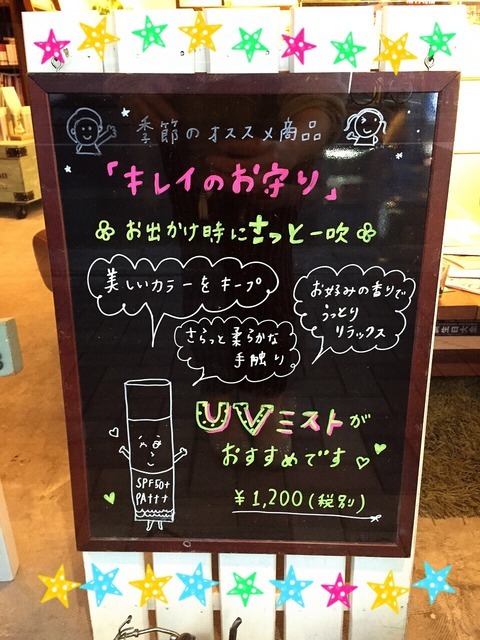 季節のオススメ商品
「キレイのお守り」
お出かけ時にさっと一吹
美しいカラーをキープ
お好みの香りで
うっとり
リラックス
さらっと柔らかな
手触り
UVミストが
おすすめです
SPF50+
PA+++
¥1,200(税別)